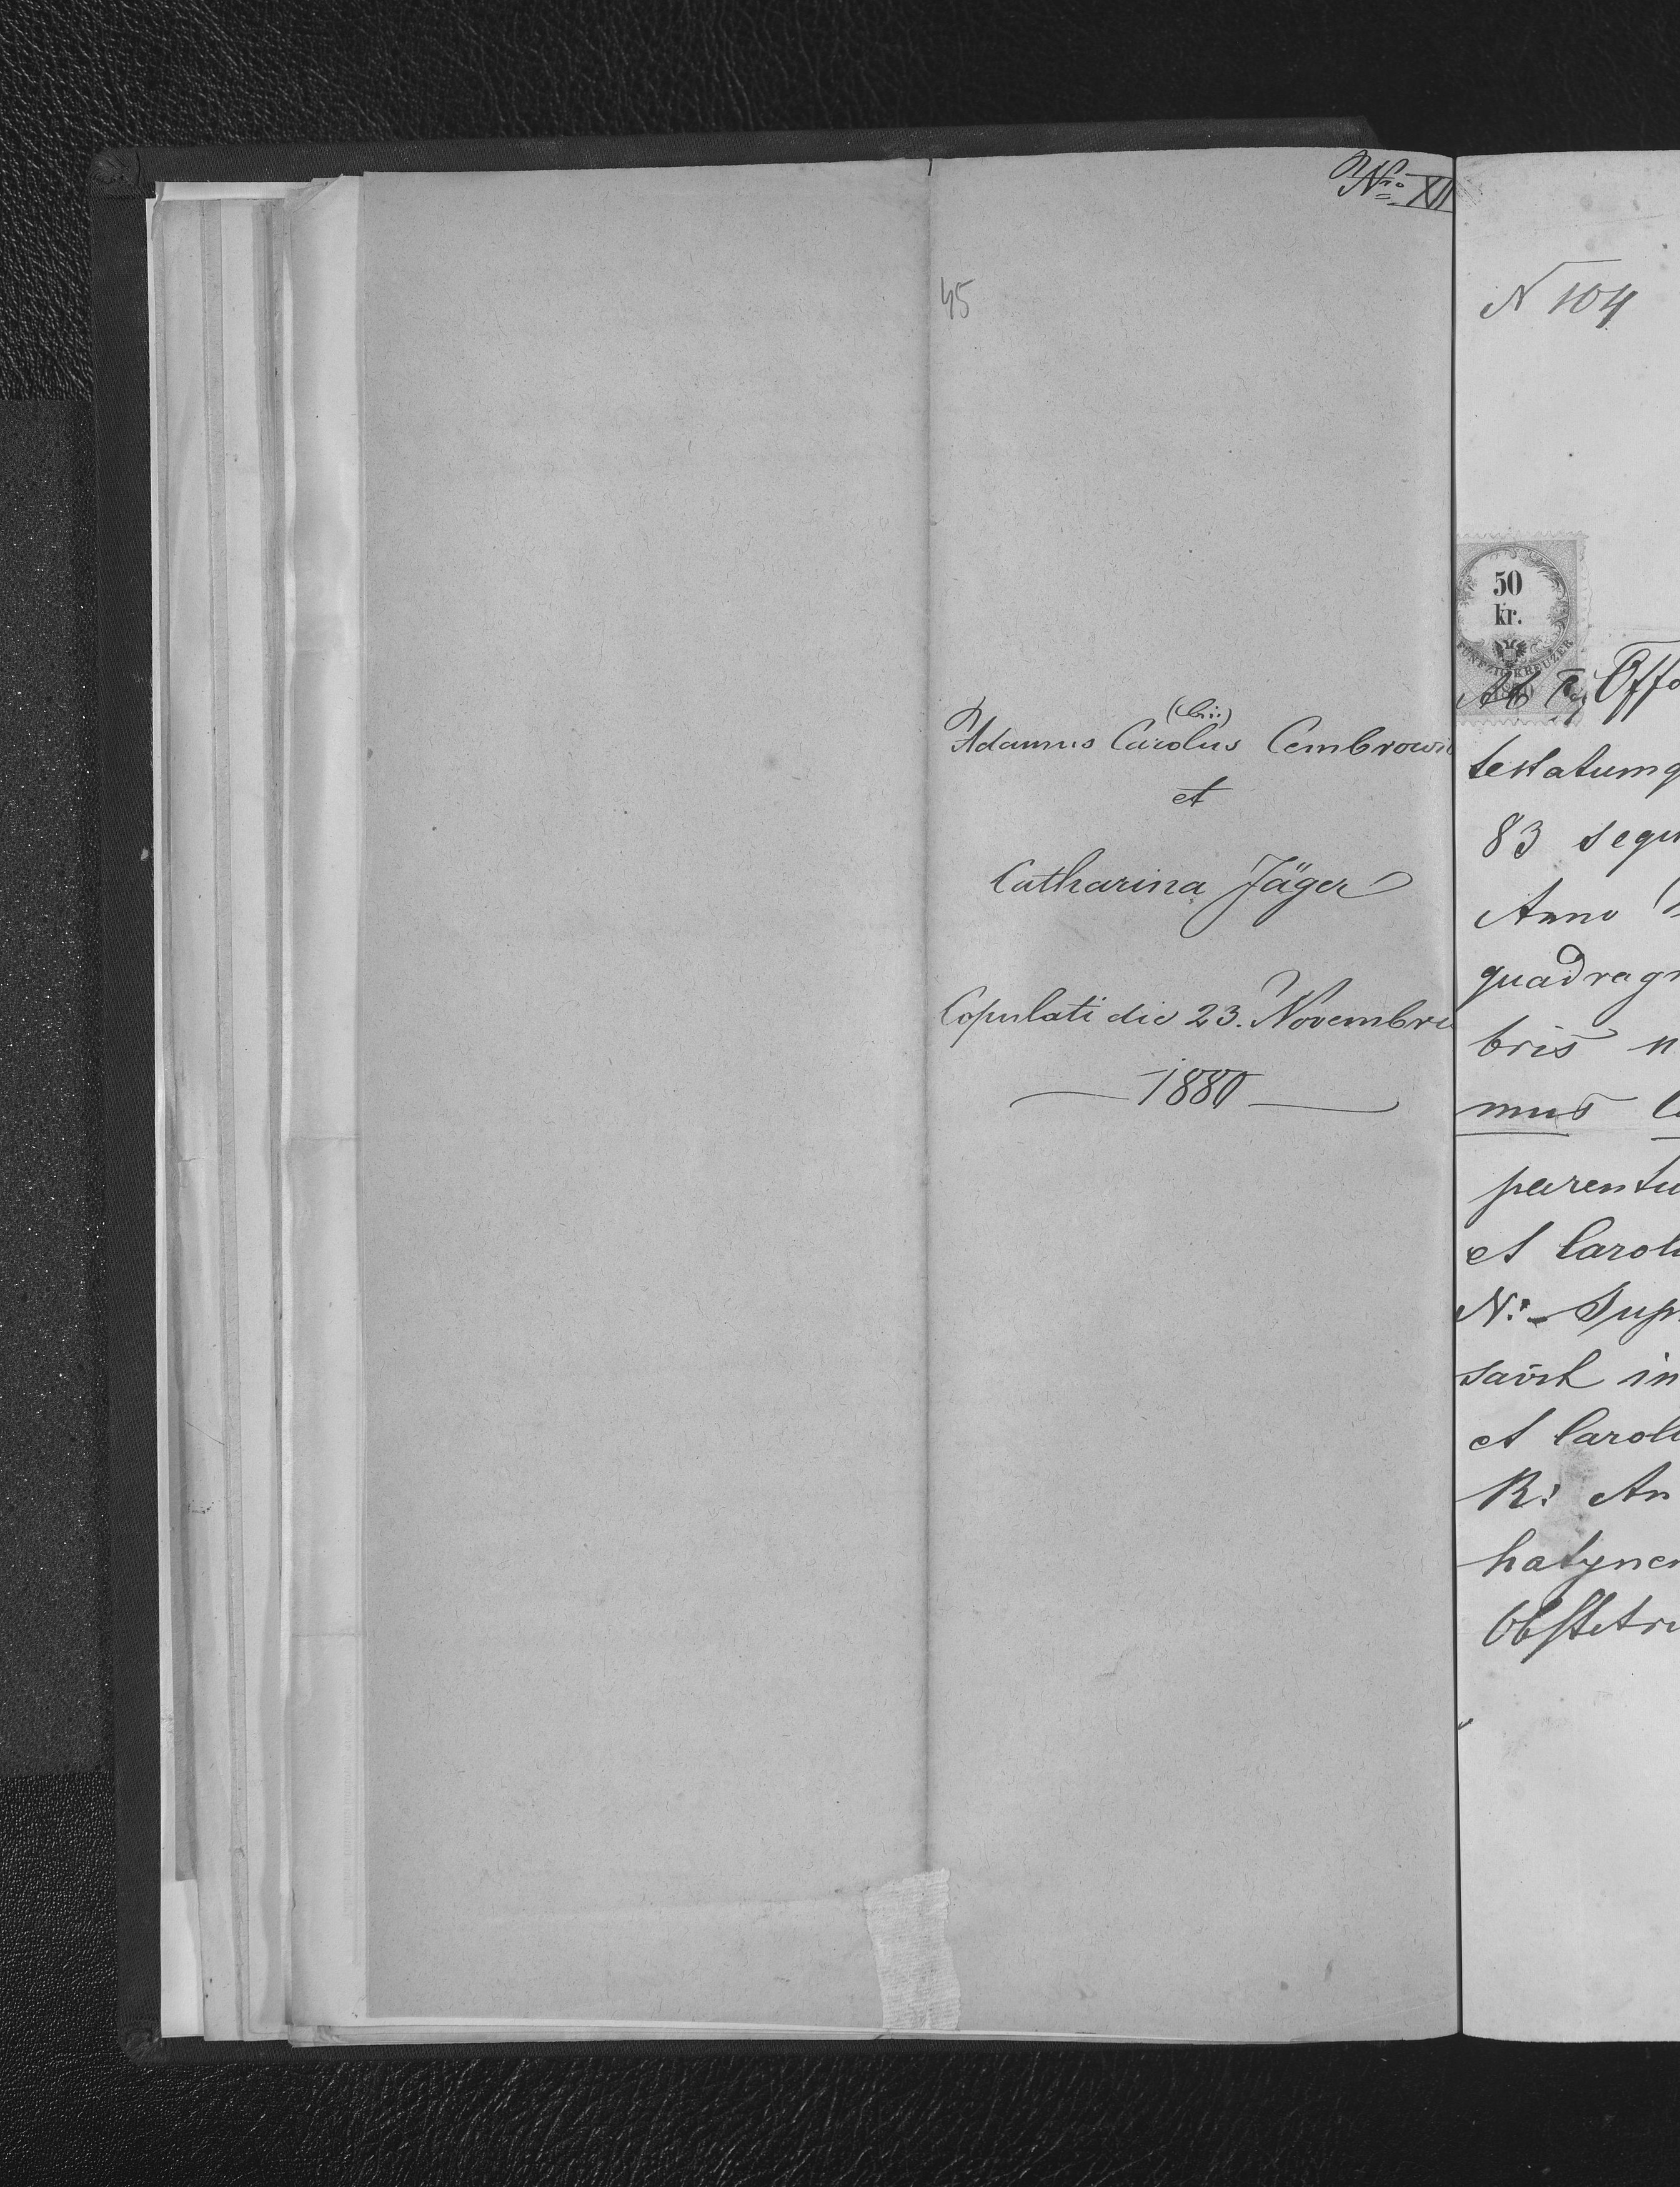 Nro XII
45
(bin:)
Adamus Carolus Cembrowic
et
Catharina Jäger
Copulati die 23. Novembris
1880
N 104
50
kr.
FÜNFZIG KREUZER
Ab Offo
testatumq
83 sequ
Anno
quadrag
bris n
mus Ca
parentu
et Carol
N: Sup
et Carol
R: An
hatynen
Obstetri